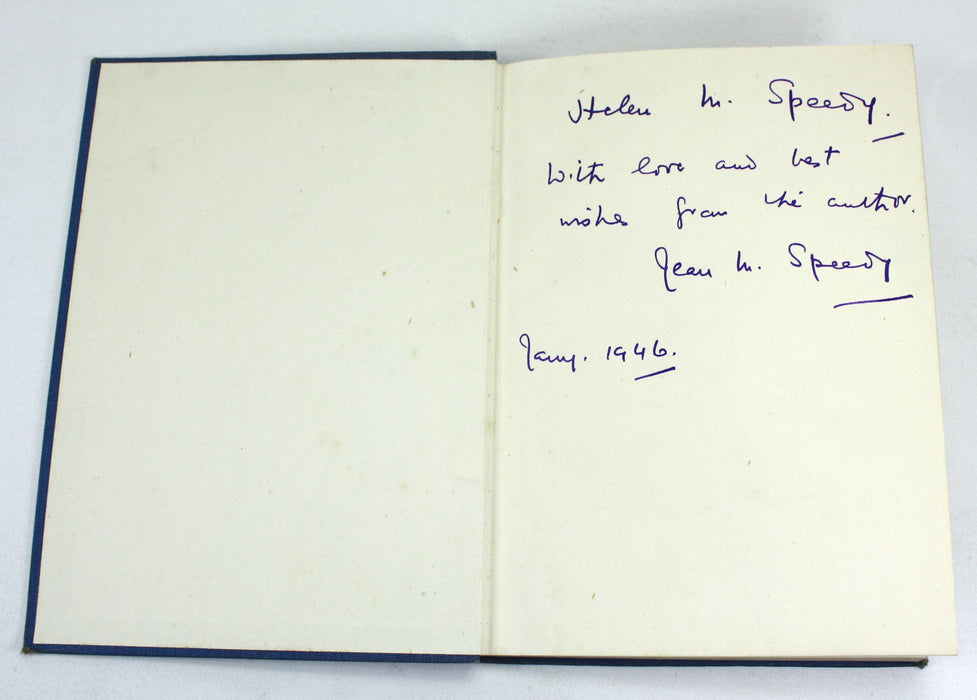 Helen M. Speedy.
With love and best
wishes from the author.
Jean M. Speedy
Jany. 1946.